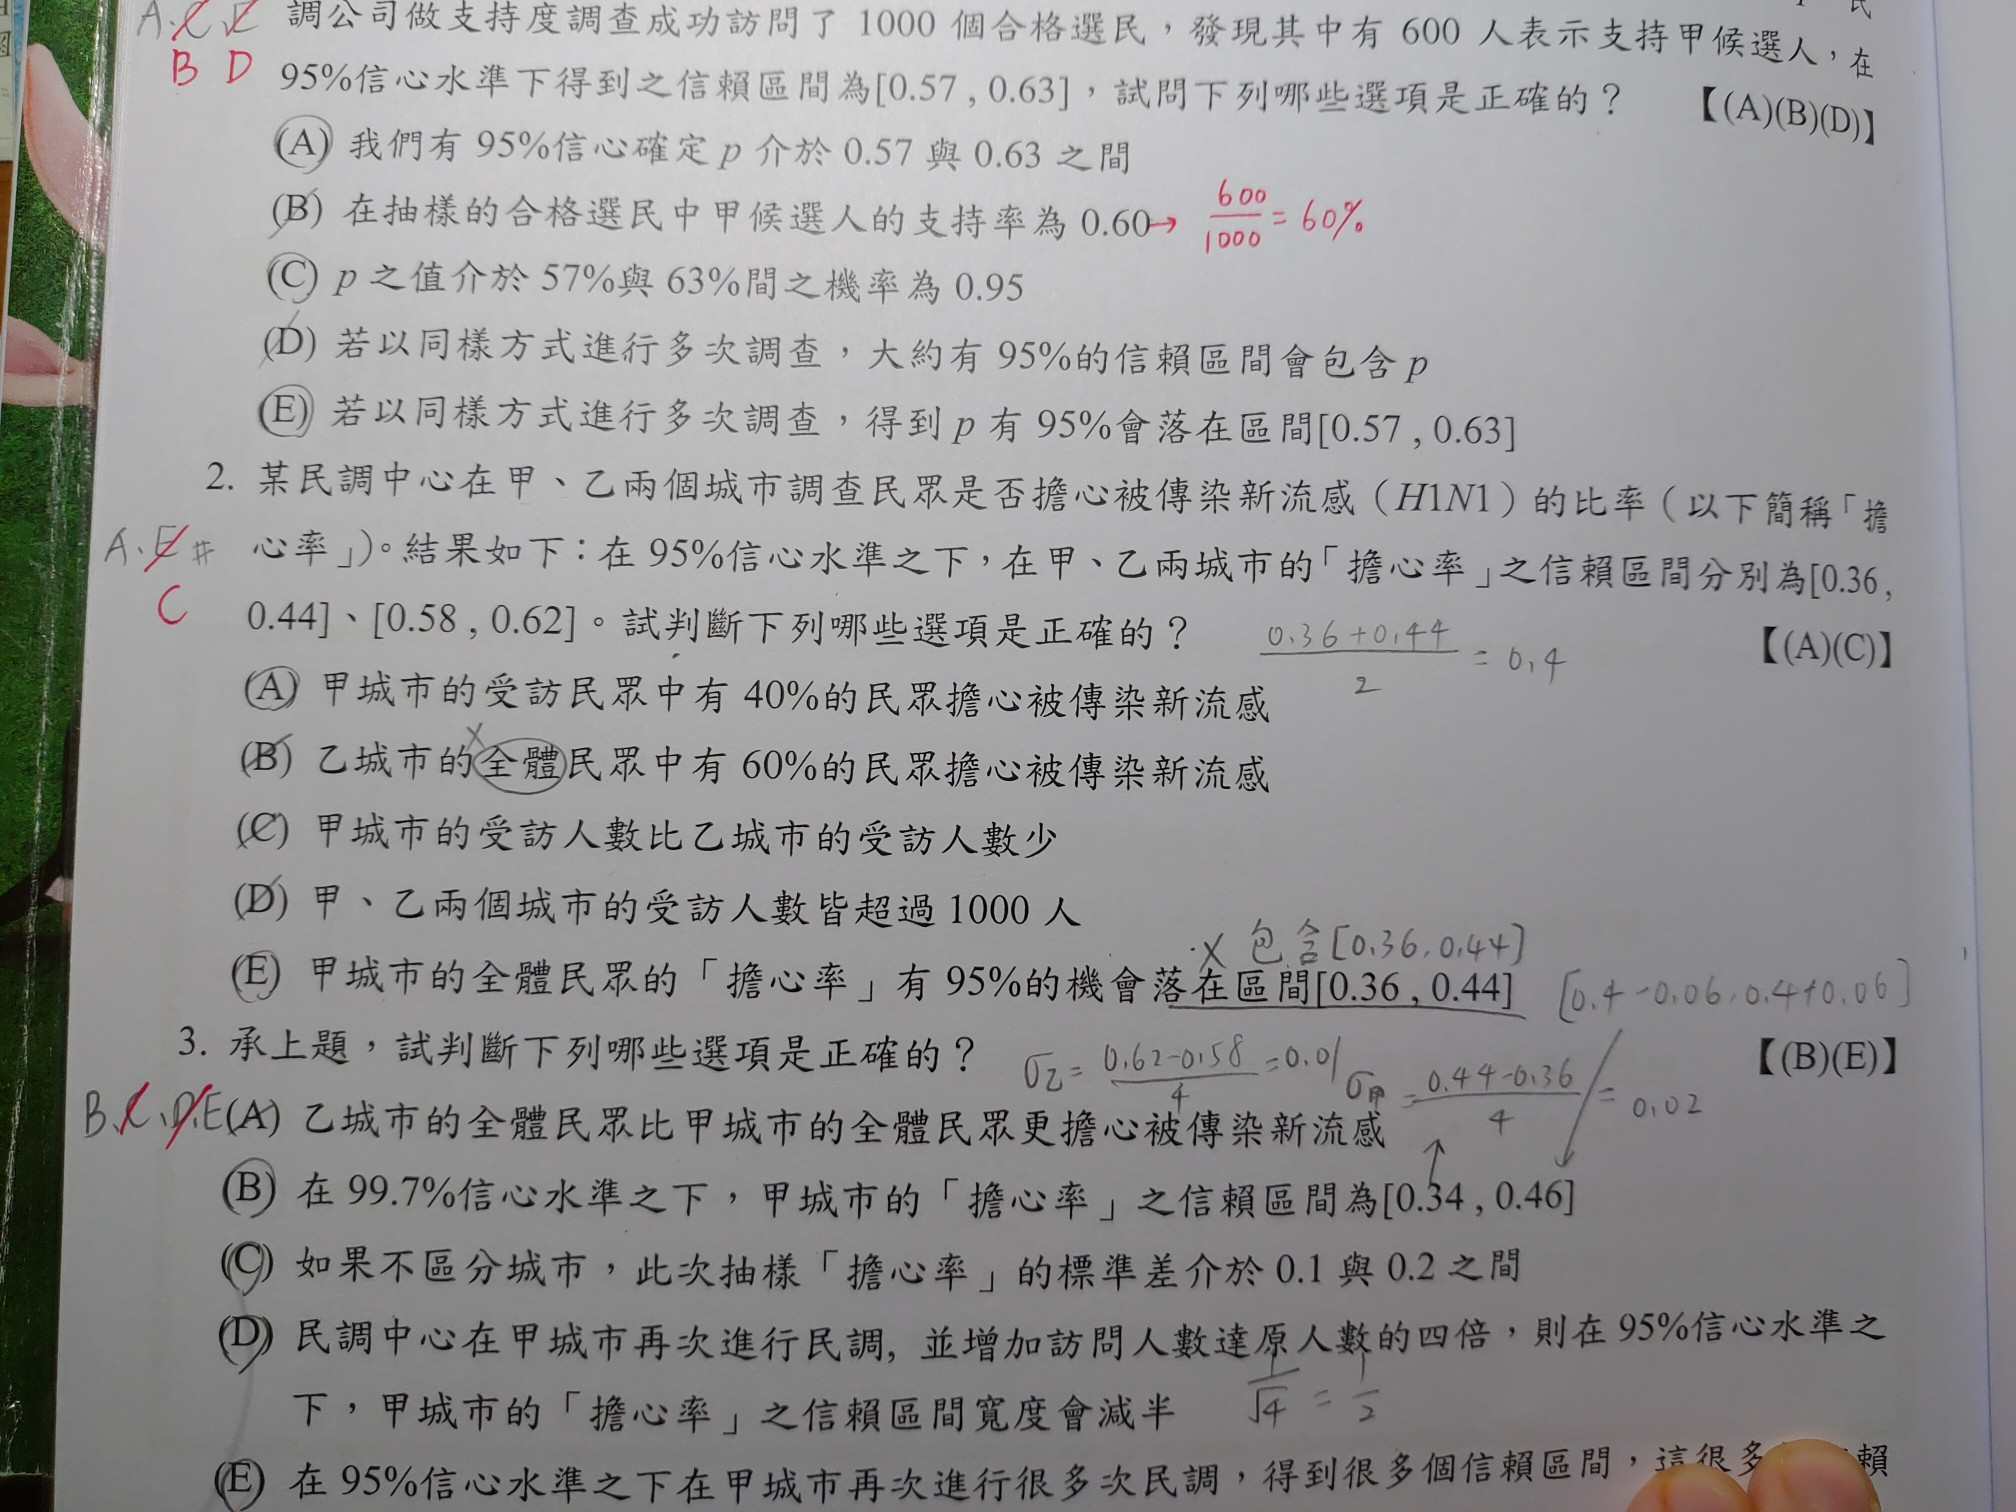 A、C、E 調公司做支持度調查成功訪問了 1000 個合格選民，發現其中有 600 人表示支持甲候選人，在
B D 95%信心水準下得到之信賴區間為[0.57 , 0.63]，試問下列哪些選項是正確的？ 【(A)(B)(D)】
(A) 我們有 95%信心確定 p 介於 0.57 與 0.63 之間
(B) 在抽樣的合格選民中甲候選人的支持率為 0.60→ 600/1000 = 60%
(C) p 之值介於 57%與 63%間之機率為 0.95
(D) 若以同樣方式進行多次調查，大約有 95%的信賴區間會包含 p
(E) 若以同樣方式進行多次調查，得到 p 有 95%會落在區間[0.57 , 0.63]
2. 某民調中心在甲、乙兩個城市調查民眾是否擔心被傳染新流感（H1N1）的比率（以下簡稱「擔
A、E # 心率」）。結果如下：在 95%信心水準之下，在甲、乙兩城市的「擔心率」之信賴區間分別為[0.36 ,
C 0.44]、[0.58 , 0.62]。試判斷下列哪些選項是正確的？ (0.36+0.44)/2 = 0.4 【(A)(C)】
(A) 甲城市的受訪民眾中有 40%的民眾擔心被傳染新流感
(B) 乙城市的全體民眾中有 60%的民眾擔心被傳染新流感
(C) 甲城市的受訪人數比乙城市的受訪人數少
(D) 甲、乙兩個城市的受訪人數皆超過 1000 人
X 包含[0.36, 0.44]
(E) 甲城市的全體民眾的「擔心率」有 95%的機會落在區間[0.36 , 0.44] [0.4-0.06, 0.4+0.06]
3. 承上題，試判斷下列哪些選項是正確的？ 【(B)(E)】
σ乙= (0.62-0.58)/4 =0.01 σ甲= (0.44-0.36)/4 = 0.02
B、C、D、E (A) 乙城市的全體民眾比甲城市的全體民眾更擔心被傳染新流感
(B) 在 99.7%信心水準之下，甲城市的「擔心率」之信賴區間為[0.34 , 0.46]
(C) 如果不區分城市，此次抽樣「擔心率」的標準差介於 0.1 與 0.2 之間
(D) 民調中心在甲城市再次進行民調, 並增加訪問人數達原人數的四倍，則在 95%信心水準之
下，甲城市的「擔心率」之信賴區間寬度會減半 1/√4 = 1/2
(E) 在 95%信心水準之下在甲城市再次進行很多次民調，得到很多個信賴區間，這很多 賴